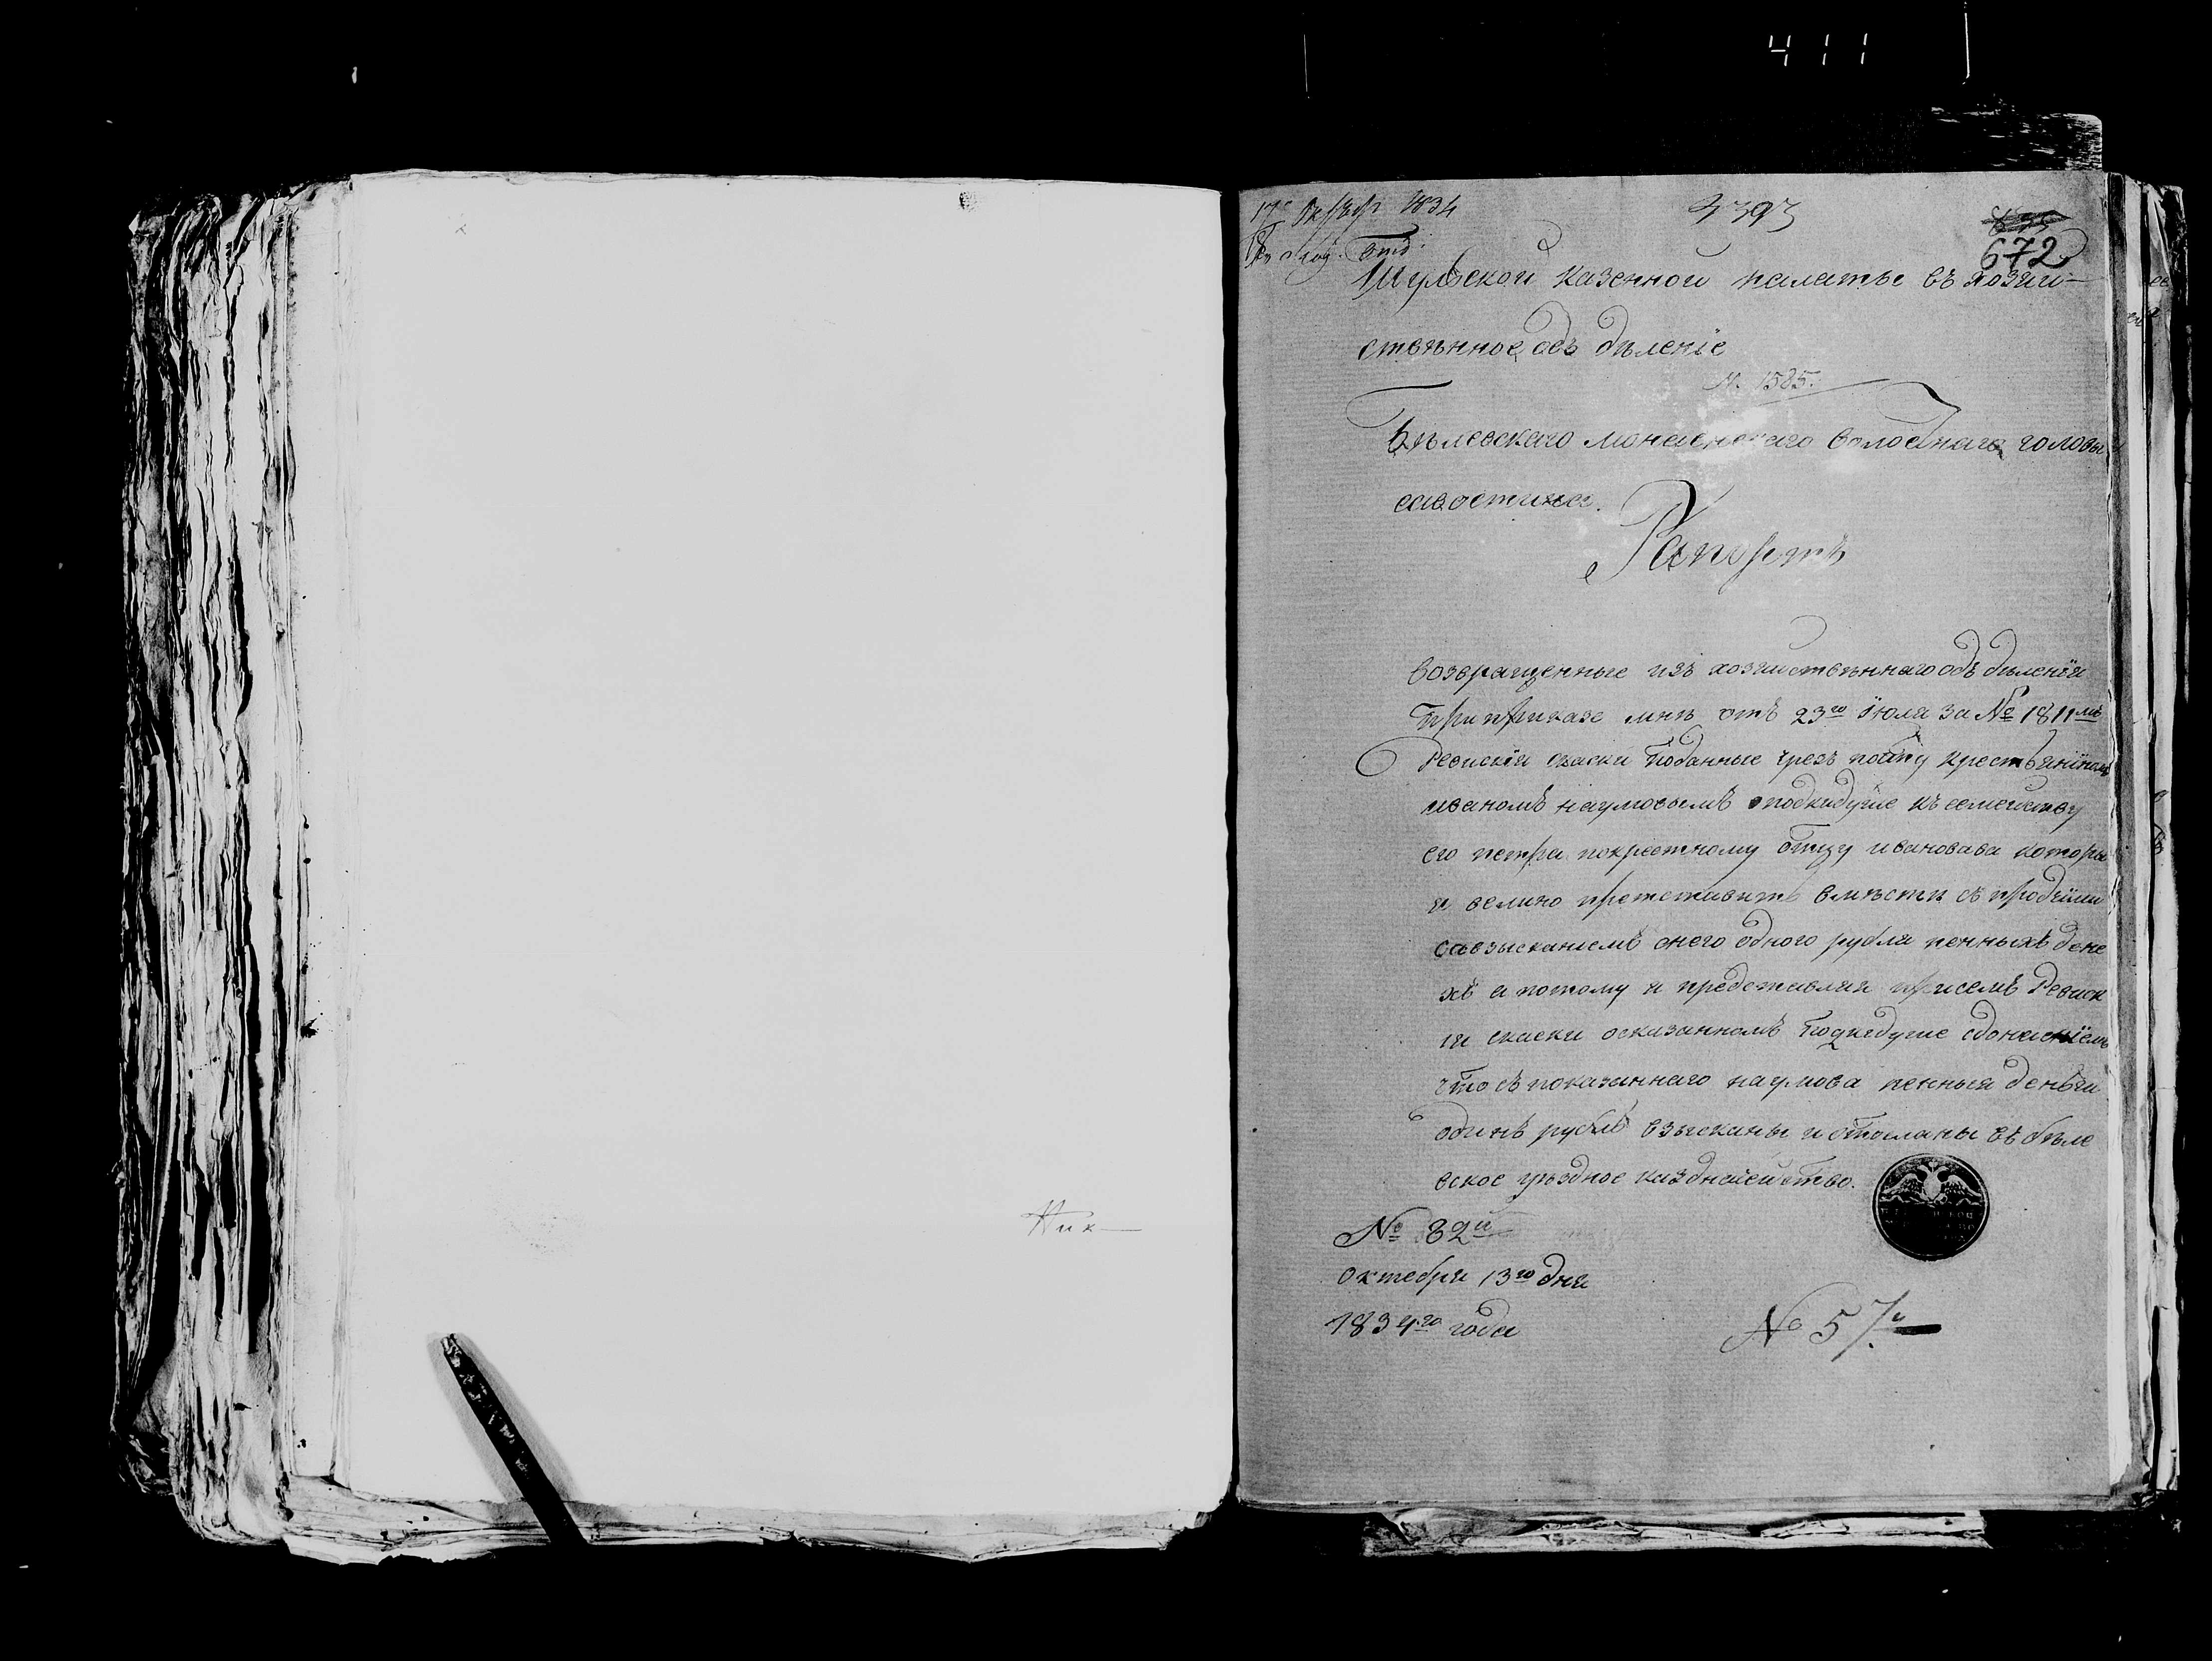 411
17 Октябр 1834
3393
672
Тульской казенной палатье въ хозяи-
ствѣнное одъ дѣленіе
№ 1585.
Бѣлевскаго волостнаго головы
савостина.
Рапортъ
возвращенные изъ хозяиствѣннаго одъ дѣленія
При приказе мнѣ отъ 23го Июля за № 1811мъ
Ревискія скаски Поданные чрезъ почту крестьяниномъ
иваномъ наумовымъ оподкидуше къ семейству
его петра покрестному Отцу ивановава которы
я велино вмѣсти съ прочими
савзысканіемъ онего одного рубля пенныхъ дене
хъ а потому и представляя присемъ Ревиск
ія скаски осказанномъ Подкидуше сдонисніемъ
что съ показаннаго наумова пенныя деньги
одинъ рубль взысканы и отосланы въ бѣле
вское уѣздное казначейство.
№ 82й
октебря 13го дня
1834го года
№ 57.
Ник